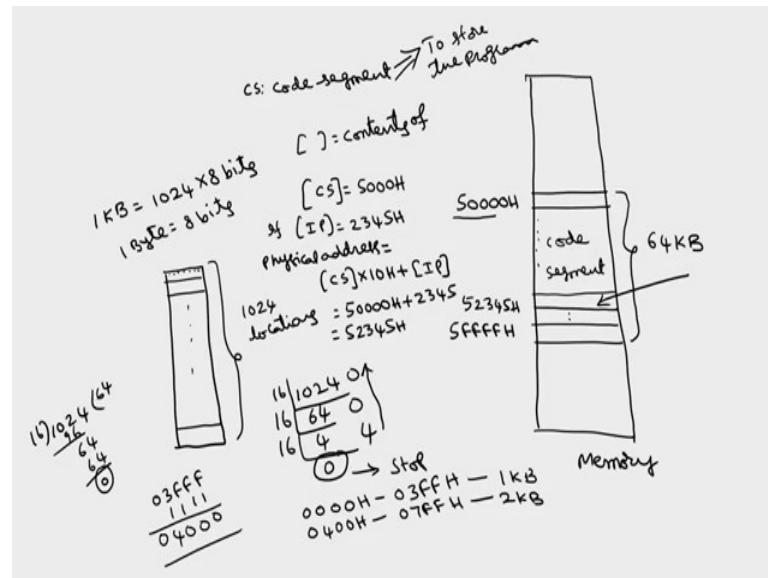 CS: code segment
To store
the program
[ ] = contents of
1 KB = 1024 × 8 bits
1 Byte = 8 bits
[CS] = 5000H
If (IP) = 2345H
Physical address =
[CS] × 10H + [IP]
= 50000H + 2345
= 52345H
1024
locations
50000H
code
segment
64KB
52345H
5FFFFH
Memory
16)1024(64
96
64
64
0
16 1024 0
16 64 0
16 4 4
0 → Stop
03FFF
1111
04000
0000H – 03FFH – 1KB
0400H – 07FFH – 2KB